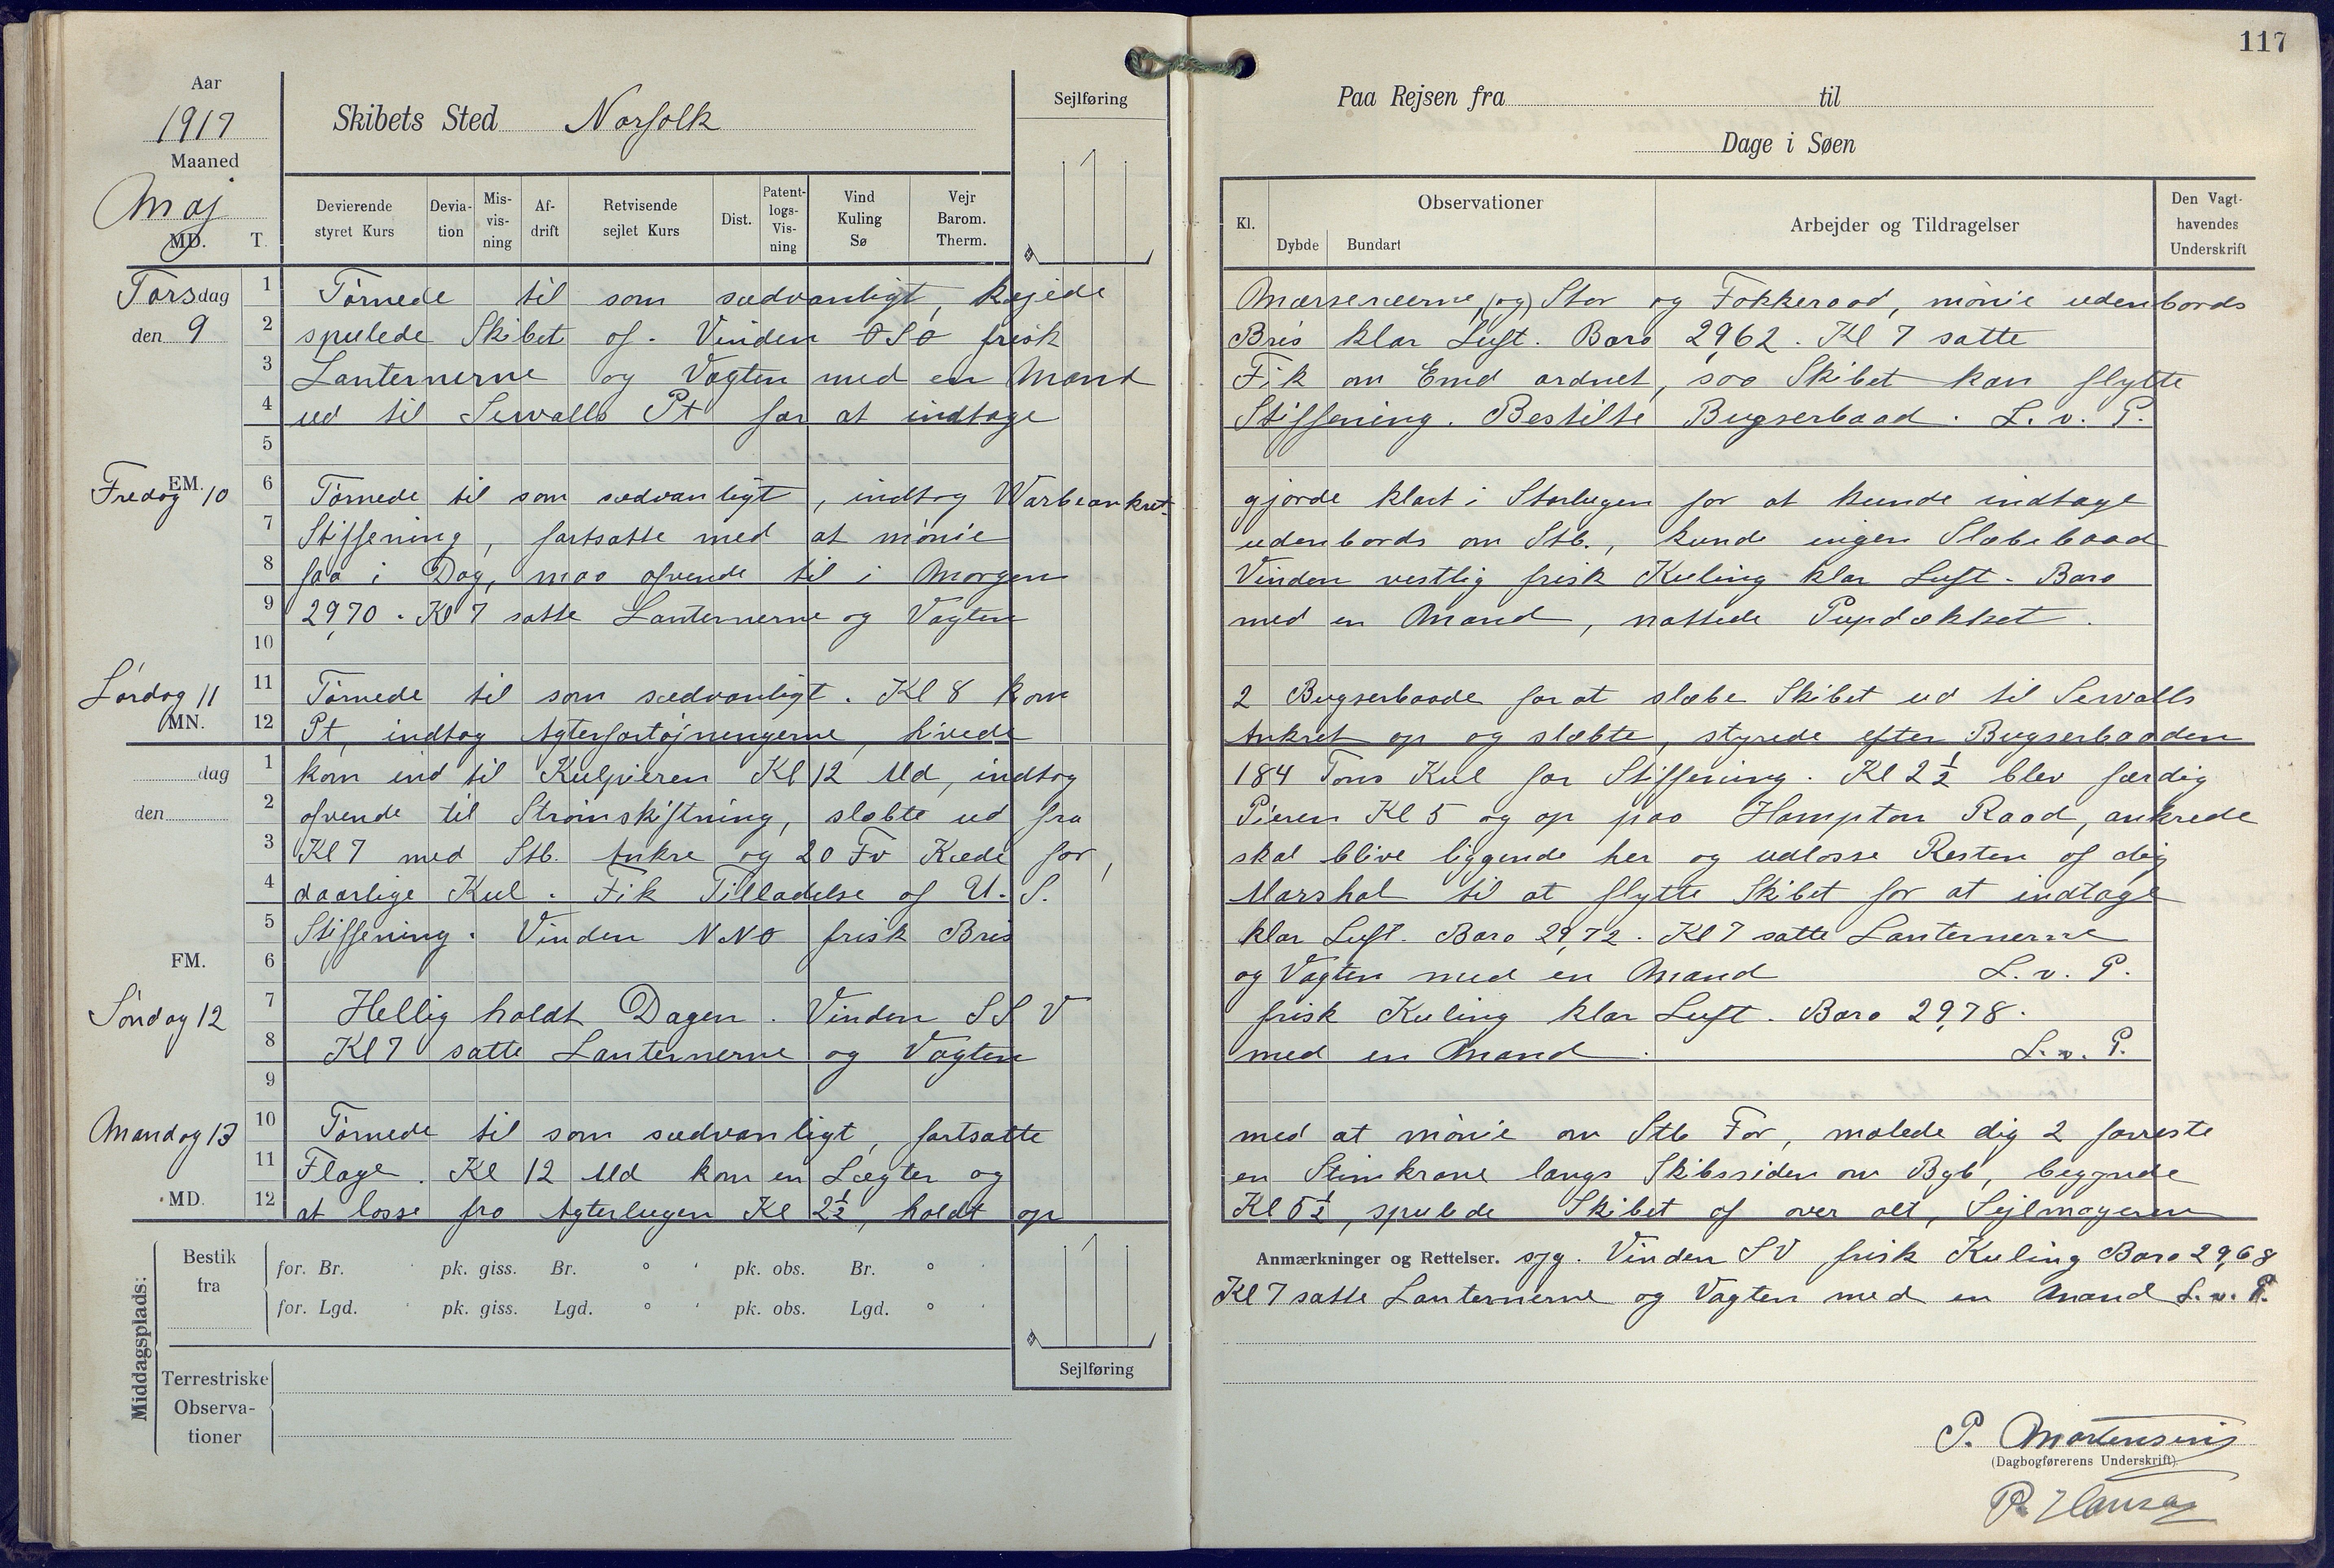 117
Aar
1917
Maaned
Maj
MD.
T.
Skibets Sted Norfolk
Sejlføring
Paa Rejsen fra til
Dage i Søen
Devierende styret Kurs
Devia-tion
Mis-vis-ning
Af-drift
Retvisende sejlet Kurs
Dist.
Patent-logs-Vis-ning
Vind Kuling Sø
Vejr Barom. Therm.
Kl.
Observationer
Dybde
Bundart
Arbejder og Tildragelser
Den Vagt-havendes Underskrift
Torsdag
den 9
1 Tørnede til som sædvanligt, Køjede Mærseræerne, (og) Stor og Fokkeraad, mønie udenbords
2 spulede Skibet af. Vinden OSO frisk Bris klar Luft. Baro 29,62. Kl 7 satte
3 Lanternerne og Vagten med en Mand Fik om Emd ordnet, saa Skibet kan flytte
4 ud til Sewalls Pt for at indtage Stiffening. Bestilte Bugserbaad. L. v. P.
5
EM.
Fredag 10
6 Tørnede til som sædvanligt, indtog Warbeankret gjorde klart i Storlugen for at kunde indtage
7 Stiffening, fortsatte med at mønie udenbords om Stb., kunde ingen Slæbebaad
8 faa i Dag, maa afvende til i Morgen Vinden vestlig frisk Kuling klar Luft. Baro
9 29,70. Kl 7 satte Lanternerne og Vagten med en Mand, nattede Pupdækket.
10
Lørdag 11
MN.
11 Tørnede til som sædvanligt. Kl 8 kom 2 Bugserbaade for at slæbe Skibet ud til Sewalls
12 Pt, indtog Agterfortøjningerne, hivede Ankret op og slæbte, styrede efter Bugserbaaden
dag
den
1 kom ind til Kulpieren Kl 12 Md, indtog 184 Tons Kul for Stiffening. Kl 2½ blev færdig
2 afvende til Strømskiftning, slæbte ud fra Pieren Kl 5 og op paa Hampton Raad, ankrede
3 Kl 7 med Stb. Ankre og 20 Fv Kæde for, skal blive liggende her og udlosse Resten af dej
4 daarlige Kul. Fik Tilladelse af U. S. Marshal til at flytte Skibet for at indtage
5 Stiffening. Vinden NNO frisk Bris klar Luft. Baro 29,72. Kl 7 satte Lanternerne
FM.
6 og Vagten med en Mand L. v. P.
Søndag 12
7 Hellig holdt Dagen. Vinden SSV frisk Kuling klar Luft. Baro 29,78.
8 Kl 7 satte Lanternerne og Vagten med en Mand. L. v. P.
9
Mandag 13
10 Tørnede til som sædvanligt, fortsatte med at mønie om Stb For, malede dig 2 forreste
11 Flage. Kl 12 Md kom en Lægter og en Stimkrane langs Skibssiden om Bgb, begynde
MD.
12 at losse fra Agterlugen Kl 2½, holdt op Kl 5½, spulede Skibet af over alt, Sejlmageren
Anmærkninger og Rettelser. syg. Vinden SV frisk Kuling Baro 29,68
Kl 7 satte Lanternerne og Vagten med en Mand L. v. P.
Middagsplads:
Bestik fra
for. Br. ' pk. giss. Br. ° ' pk. obs. Br. ° '
for. Lgd. ' pk. giss. Lgd. ° ' pk. obs. Lgd. ° '
Sejlføring
Terrestriske Observa-tioner
P. Mortensen
(Dagbogførerens Underskrift)